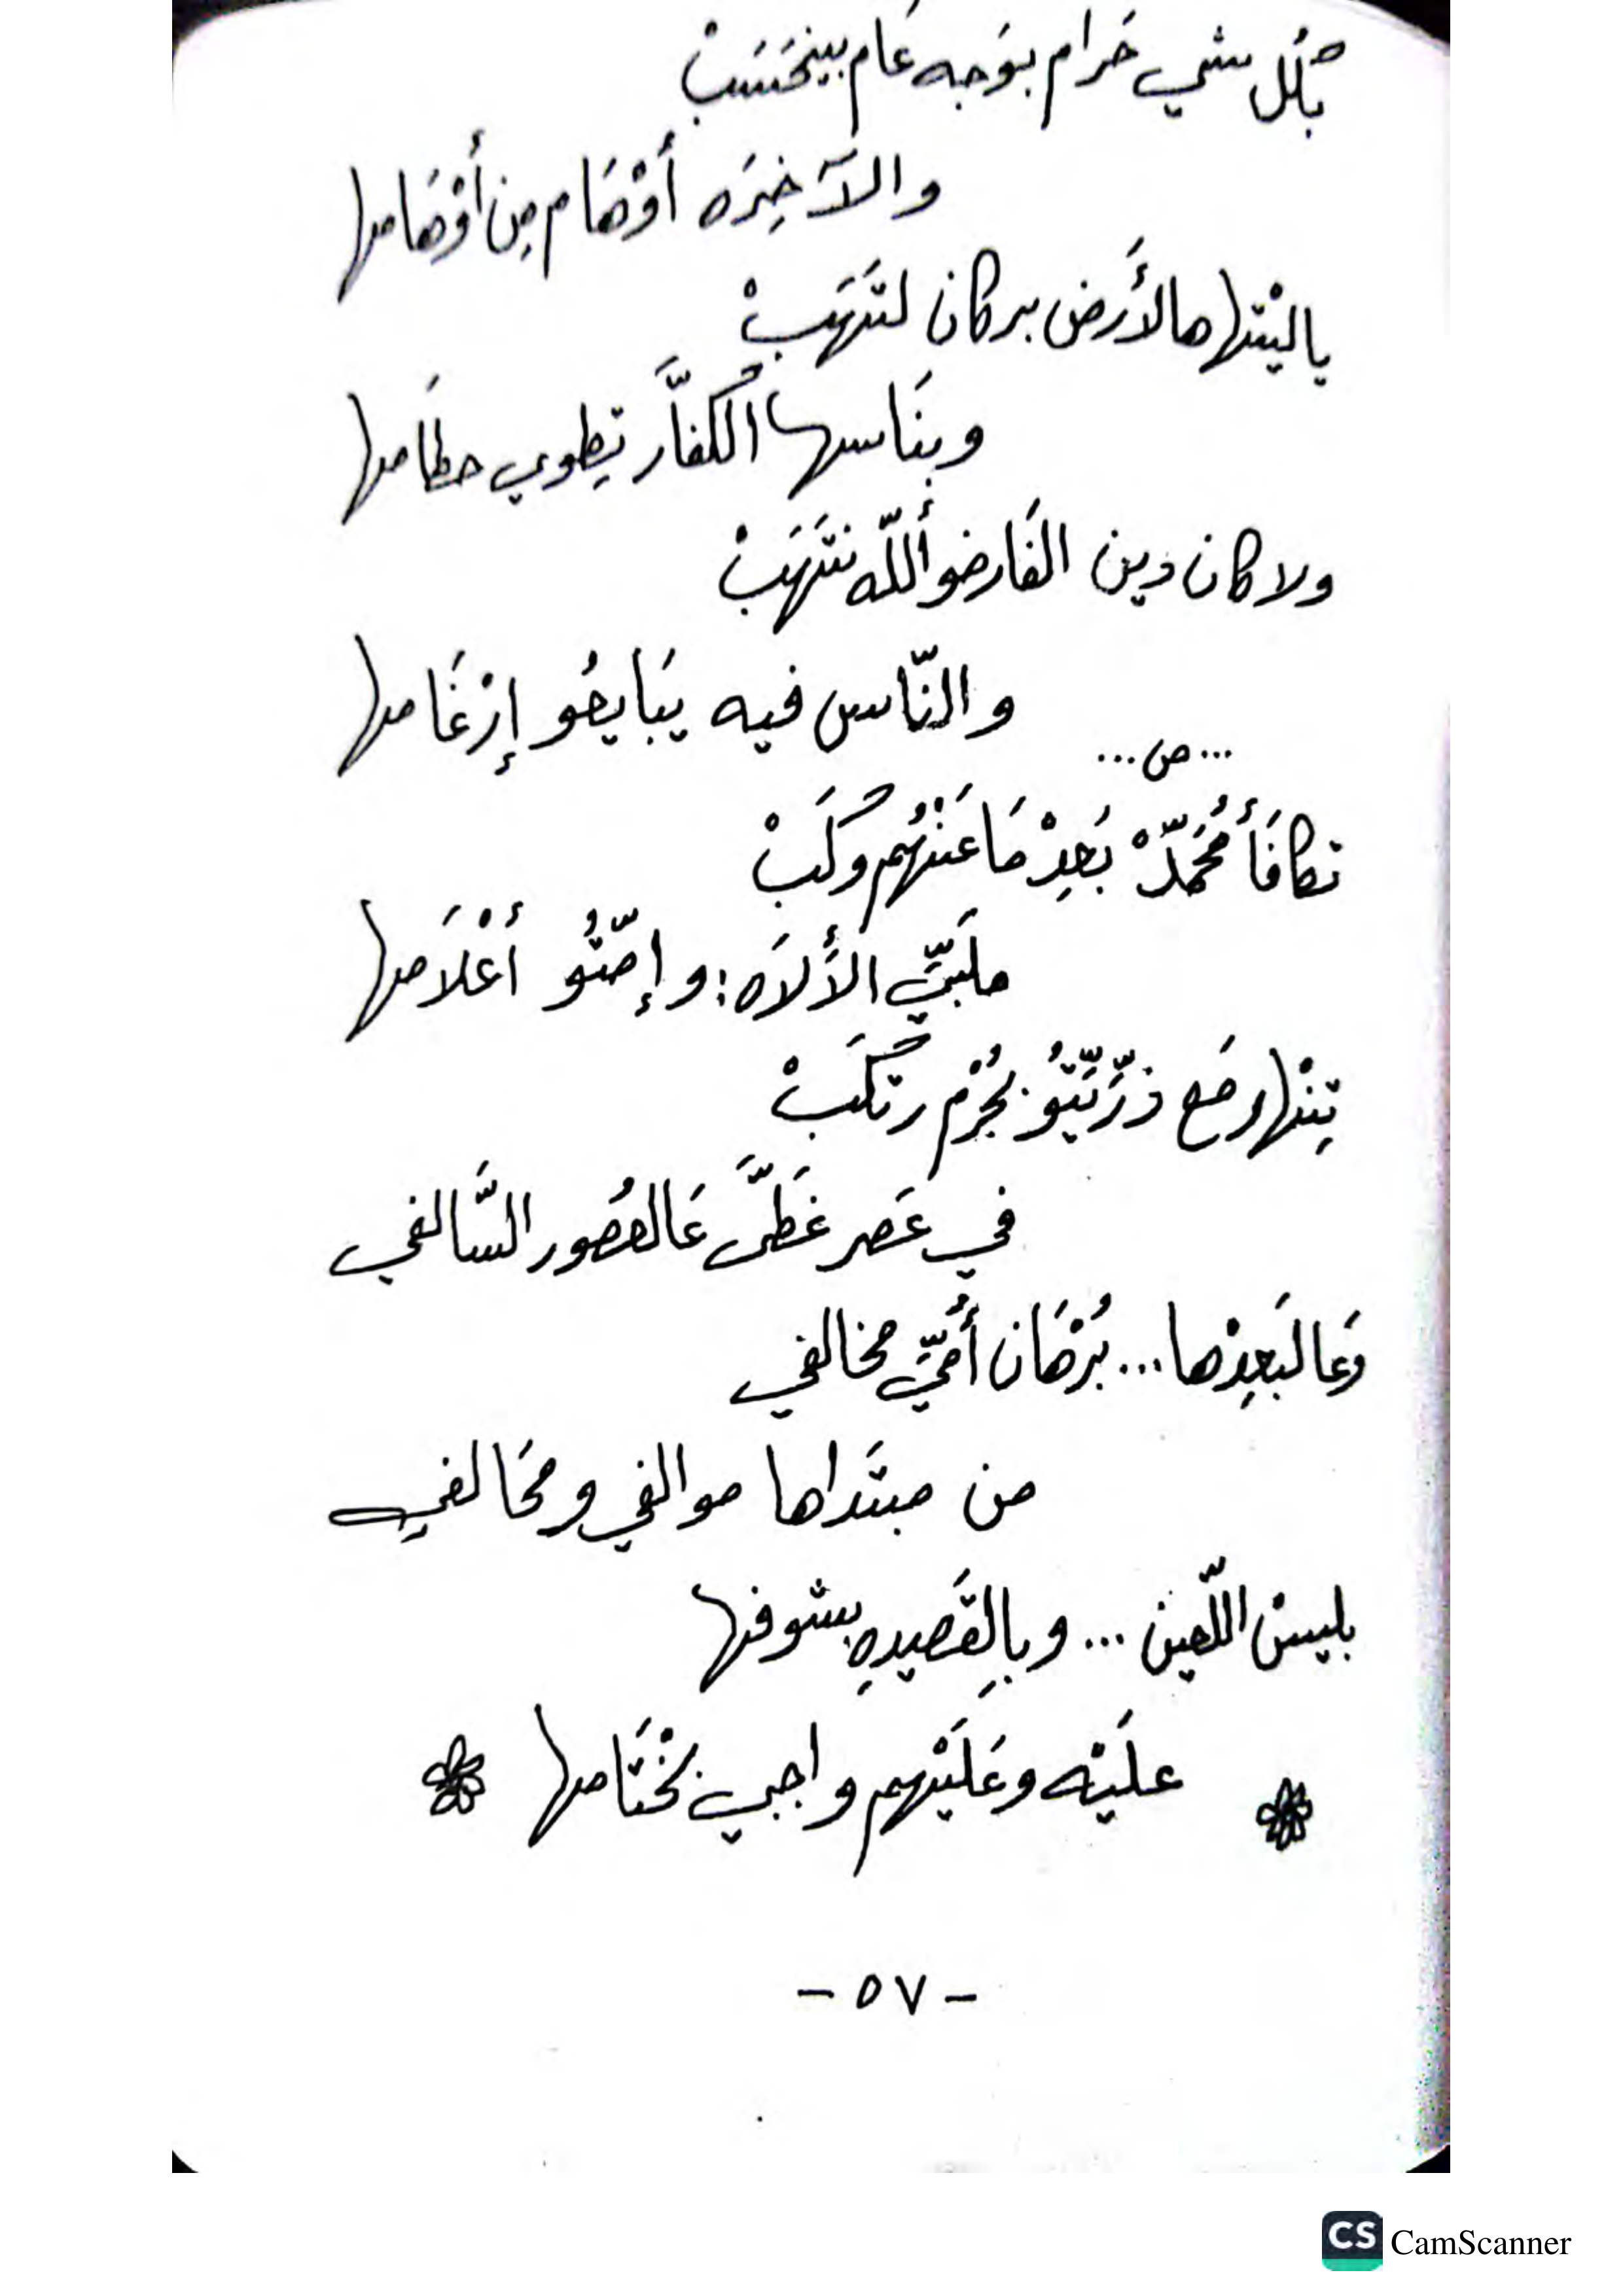 بكُل شي حَرام بوَجه عَام بينحَسَبْ
والآخِرَه أَوْهَام مِن أَوْهَامها
ياليْتها هالأَرض بركان لتَهَبْ
وبنَاسها الكُفَّار تِطوي حطَامها
ولا كان دين الفَارضو أللّه نتَهَبْ
والنّاس فيه يبَايعُو إرْغَامها
...ص...
تكافَأ مُحَمّدْ بَعِدْ مَا عَنْهُم وكَبْ
ملَبّي الأَلاَه: وإمّتُو أَعْلاَمها
تِنْهار مَع ذرِّيّتُو بجُرْم رتكَبْ
في عَصر غَطَّى عَالعصُور السَّالفي
وعَالبَعِدْها... بُرْهَان أُمّي مخالفي
من مبتَداها موالفي ومخَالفي
بليس اللّعين ... وبالِقَصيدِه بشوفها
عليَه وعَليْهم واجبي بخْتَامها
- ٥٧ -
CS CamScanner